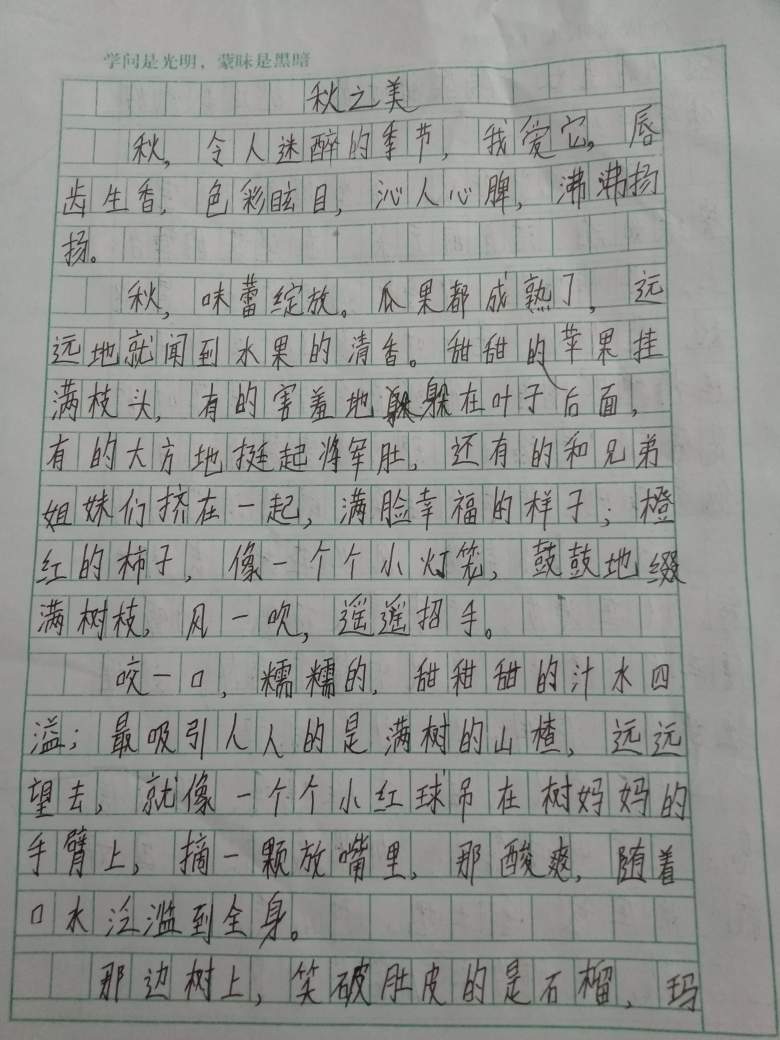 学问是光明，蒙昧是黑暗
秋之美
秋，令人迷醉的季节，我爱它，唇
齿生香，色彩眩目，沁人心脾，沸沸扬
扬。
秋，味蕾绽放。瓜果都成熟了，远
远地就闻到水果的清香。甜甜的苹果挂
满枝头，有的害羞地躲在叶子后面，
有的大方地挺起将军肚，还有的和兄弟
姐妹们挤在一起，满脸幸福的样子；橙
红的柿子，像一个个小灯笼，鼓鼓地缀
满树枝，风一吹，遥遥招手。
咬一口，糯糯的，甜甜甜的汁水四
溢；最吸引人人的是满树的山楂，远远
望去，就像一个个小红球吊在树妈妈的
手臂上，摘一颗放嘴里，那酸爽，随着
口水泛滥到全身。
那边树上，笑破肚皮的是石榴，玛